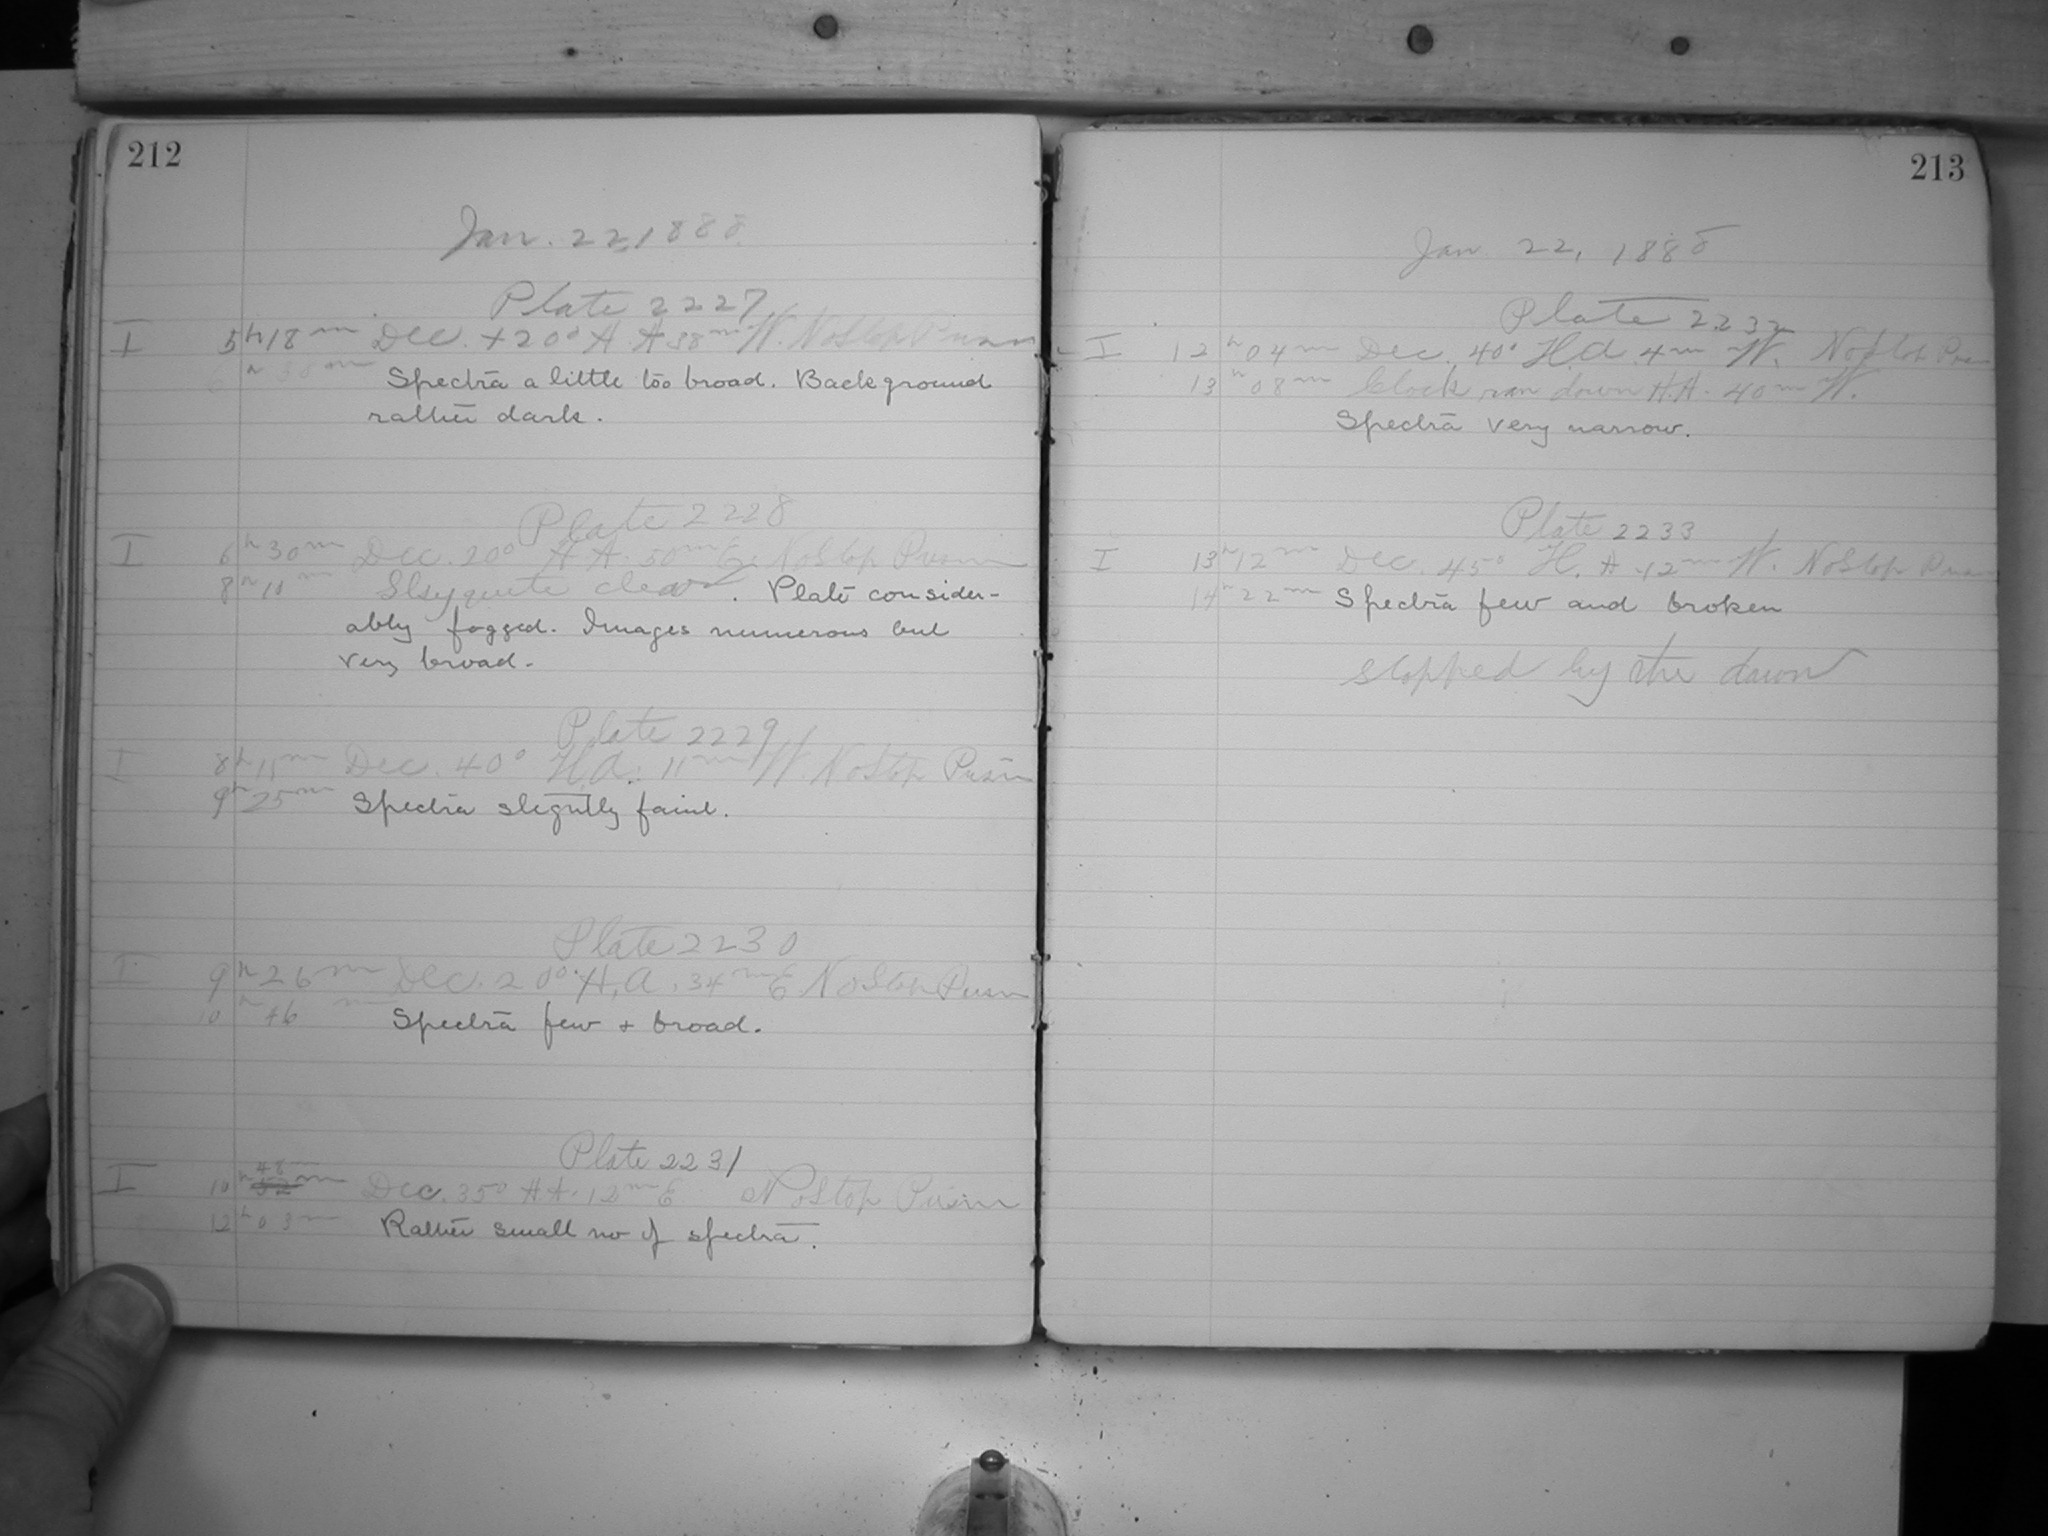 212
Jan. 22, 1888.
Plate 2227
I 5h 18m Dec. +20° H A 38m W. No Stop Prism
38m Spectra a little too broad. Background
rather dark.
Plate 2228
I 6h 30m Dec. 20° H A. 50m E. No Stop Prism
8h 10m Sky quite clear. Plate consider-
ably fogged. Images numerous but
very broad.
Plate 2229
I 8h 15m Dec. 40° H.A. 11m W. No Stop Prism
9h 25m Spectra slightly faint.
Plate 2230
I 9h 26m Dec. 20° H.A. 34m E No Stop Prism
10h 46m Spectra few + broad.
Plate 2231
48
I 10h 52m Dec. 35° H A. 12m E No Stop Prism
12h 03m Rather small no of spectra.
213
Jan 22, 1888
Plate 2232
I 12h 04m Dec. 40° H.A. 4m W. No Stop Prism
13h 08m Clock ran down H.A. 40m W.
Spectra very narrow.
Plate 2233
I 13h 12m Dec. 45° H. A. 12m W. No Stop Prism
14h 22m Spectra few and broken
stopped by the dawn